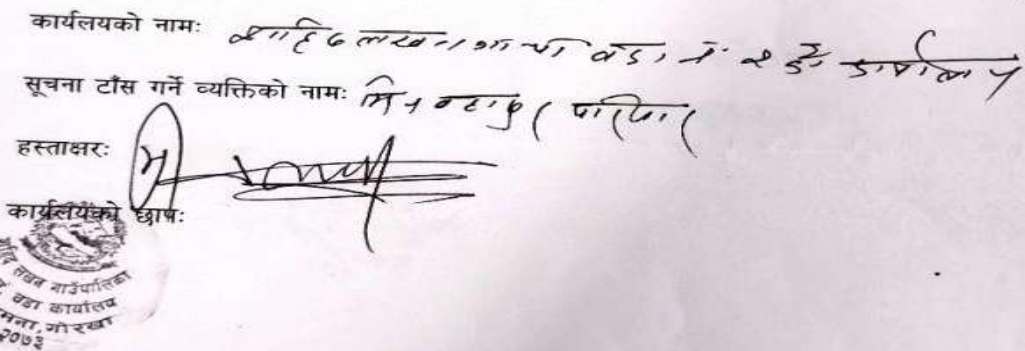 कार्यलयको नामः शाहिद लखन गा पा वडा नं २ को कार्यालय
सूचना टाँस गर्ने व्यक्तिको नामः मिन बहादुर परियार
हस्ताक्षरः
कार्यलयको छापः
लखन गाउँपालिका
वडा कार्यालय
गोरखा
२०७३